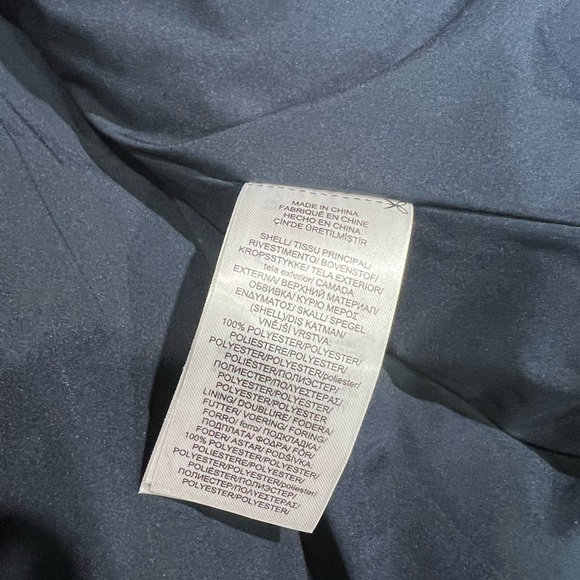 MADE IN CHINA
FABRIQUÉ EN CHINE
HECHO EN CHINA
ÇİN'DE ÜRETİLMİŞTİR
SHELL/ TISSU PRINCIPAL/
RIVESTIMENTO/ BOVENSTOF/
KROPSSTYKKE/ TELA EXTERIOR/
tela exterior/ CAMADA
EXTERNA/ ВЕРХНИЙ МАТЕРИАЛ/
ОБВИВКА/ ΚΥΡΙΟ ΜΕΡΟΣ
ΕΝΔΥΜΑΤΟΣ/ SKALL/ SPEGEL
(SHELL)/ DIŞ KATMAN/
VNĚJŠÍ VRSTVA:
100% POLYESTER/POLYESTER/
POLIESTERE/POLYESTER/
POLYESTER/POLIÉSTER/poliester/
POLIÉSTER/ПОЛИЭСТЕР/
ПОЛИЕСТЕР/ΠΟΛΥΕΣΤΕΡΑΣ/
POLYESTER/POLYESTER/
POLYESTER/POLYESTER
LINING/ DOUBLURE/ FODERA/
FUTTER/ VOERING/ FORING/
FORRO/ forro/ ПОДКЛАДКА/
ПОДПЛАТА/ ΦΟΔΡΑ/ FÔR/
FODER/ ASTAR/ PODŠÍVKA:
100% POLYESTER/POLYESTER/
POLIESTERE/POLYESTER/
POLYESTER/POLIÉSTER/poliester/
POLIÉSTER/ПОЛИЭСТЕР/
ПОЛИЕСТЕР/ΠΟΛΥΕΣΤΕΡΑΣ/
POLYESTER/POLYESTER/